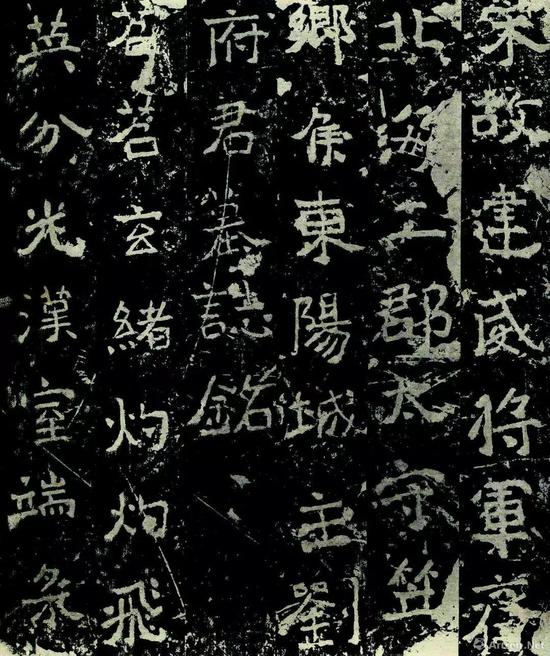 宋故建威将軍齊
北海二郡太守笠
鄉侯東陽城主劉
府君墓誌銘
苕苕玄緒灼灼飛
英分光漢室端彖
Artron.Net